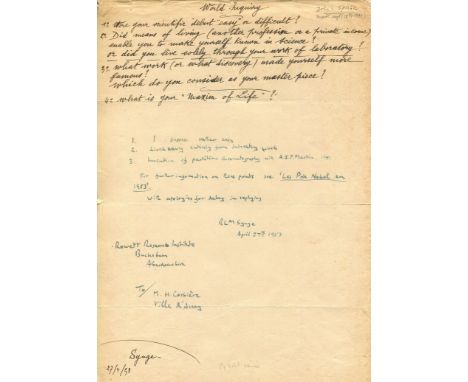 World Inquiry
1º Were your scientific debut "easy" or difficult!
2º Did means of living (another profession or a private income)
enable you to make yourself known in Science?
or did you live solely through your work of laboratory!
3º What work (or what discovery) made yourself more
famous!
which do you consider as your master piece!
4º What is your "Maxim of Life"!
1. I suppose rather easy
2. Livelihood entirely from laboratory work
3. Invention of partition chromatography with A.J.P. Martin
For further information on these points see 'Les Prix Nobel en
1952'.
With apologies for delay in replying
RLM Synge
April 27th 1953
Rowett Research Institute
Bucksburn
Aberdeenshire
To/
M. H. Corbière
Ville d'Avray
Synge
27/4/53